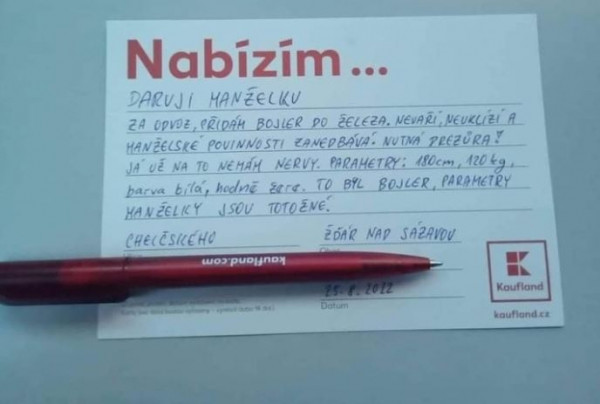 Nabízím...
DARUJI MANŽELKU
ZA ODVOZ, PŘIDÁM BOJLER DO ŽELEZA. NEVAŘÍ, NEUKLÍZÍ A
MANŽELSKÉ POVINNOSTI ZANEDBÁVÁ. NUTNÁ DREZÚRA!
JÁ UŽ NA TO NEMÁM NERVY. PARAMETRY: 180cm, 120kg,
barva bílá, hodně žere. TO BYL BOJLER, PARAMETRY
MANŽELKY JSOU TOTOŽNÉ.
CHELČSKÉHO
ŽĎÁR NAD SÁZAVOU
kaufland.com
25.8.2022
Datum
Kaufland
kaufland.cz